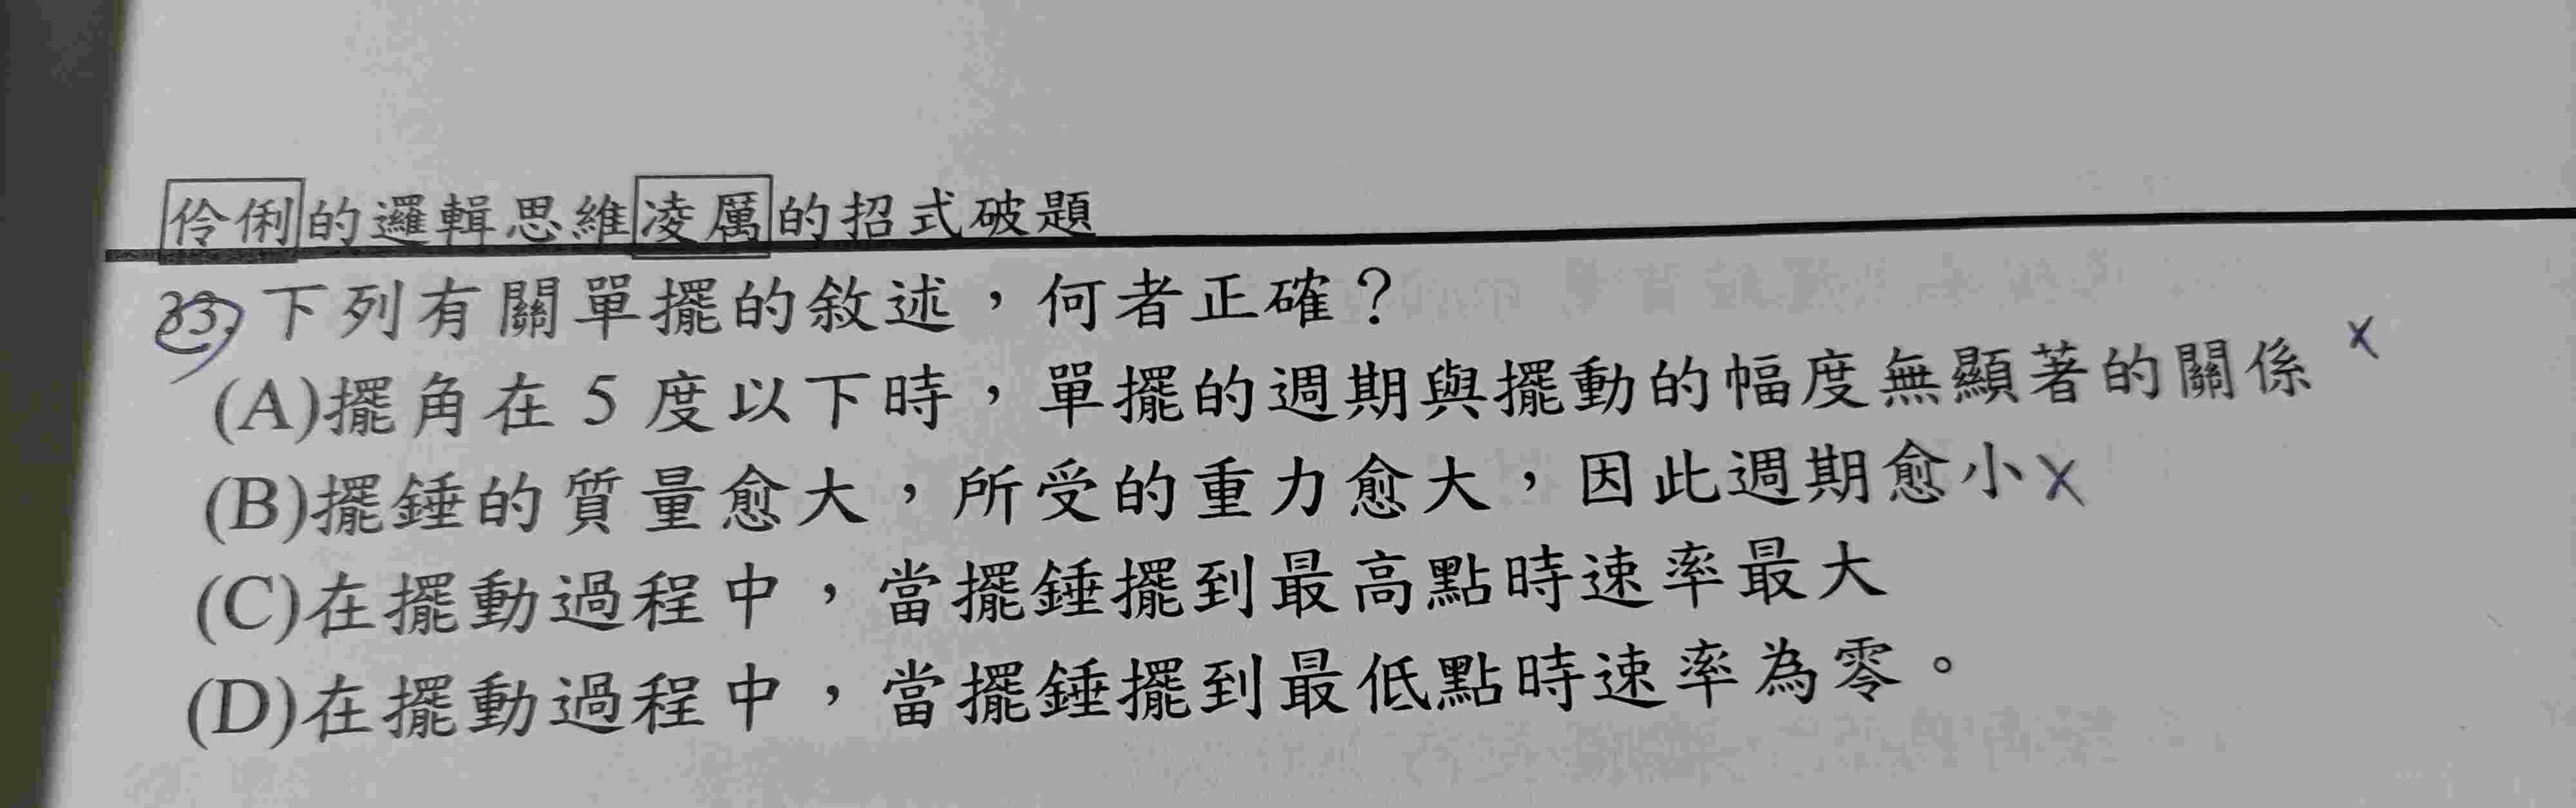 伶俐的邏輯思維凌厲的招式破題
33, 下列有關單擺的敘述，何者正確？
(A)擺角在 5 度以下時，單擺的週期與擺動的幅度無顯著的關係 X
(B)擺錘的質量愈大，所受的重力愈大，因此週期愈小X
(C)在擺動過程中，當擺錘擺到最高點時速率最大
(D)在擺動過程中，當擺錘擺到最低點時速率為零。